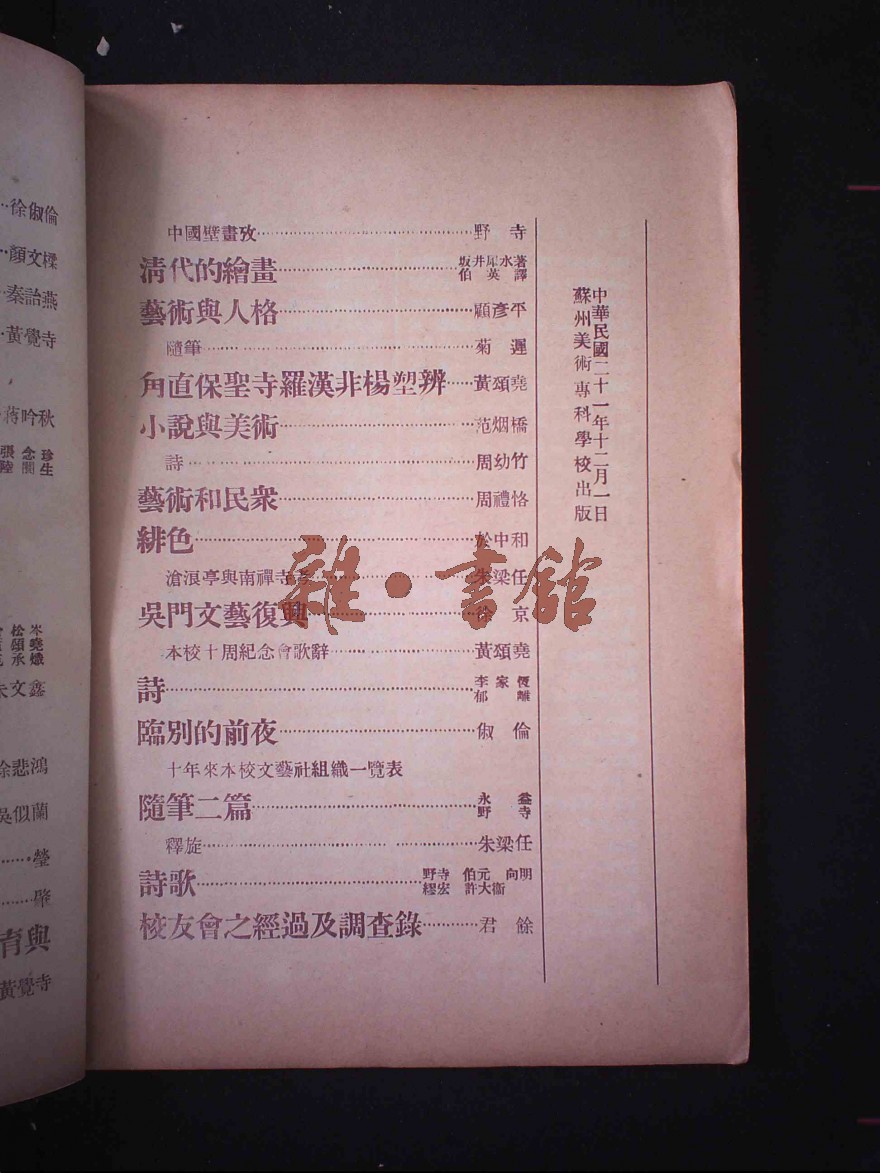 徐俶倫
顏文樑
秦詒燕
黃覺寺
蔣吟秋
張念珍
陸閏生
松岑
頌堯
承熾
朱文鑫
徐悲鴻
吳似蘭
瑩
肇
育與
黃覺寺
中國壁畫攷……野寺
清代的繪畫……坂井犀水著 伯英譯
藝術與人格……顧彥平
隨筆……菊遲
角直保聖寺羅漢非楊塑辨……黃頌堯
小說與美術……范烟橋
詩……周幼竹
藝術和民衆……周禮恪
緋色……於中和
滄浪亭與南禪寺……朱梁任
吳門文藝復興……徐京
本校十周紀念會歌辭……黃頌堯
詩……李家 郁離
臨別的前夜……俶倫
十年來本校文藝社組織一覽表
隨筆二篇……永益 野寺
釋旋……朱梁任
詩歌……野寺 伯元 向明 繆宏 許大衞
校友會之經過及調查錄……君餘
中華民國二十一年十二月一日
蘇州美術專科學校出版
雜·書館